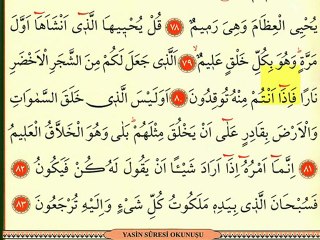 يُحْيِى الْعِظَامَ وَهِىَ رَمِيمٌ ﴿٧٨﴾ قُلْ يُحْيِيهَا الَّذِٓى اَنْشَاَهَٓا اَوَّلَ
مَرَّةٍ وَهُوَ بِكُلِّ خَلْقٍ عَلِيمٌ ﴿٧٩﴾ اَلَّذِى جَعَلَ لَكُمْ مِنَ الشَّجَرِ الْاَخْضَرِ
نَارًا فَاِذَٓا اَنْتُمْ مِنْهُ تُوقِدُونَ ﴿٨٠﴾ اَوَلَيْسَ الَّذِى خَلَقَ السَّمٰوَاتِ
وَالْاَرْضَ بِقَادِرٍ عَلٰٓى اَنْ يَخْلُقَ مِثْلَهُمْ بَلٰى وَهُوَ الْخَلَّاقُ الْعَلِيمُ
﴿٨١﴾ اِنَّمَٓا اَمْرُهُٓ اِذَٓا اَرَادَ شَيْئًا اَنْ يَقُولَ لَهُ كُنْ فَيَكُونُ ﴿٨٢﴾
فَسُبْحَانَ الَّذِى بِيَدِهِ مَلَكُوتُ كُلِّ شَىْءٍ وَاِلَيْهِ تُرْجَعُونَ ﴿٨٣﴾
YASİN SÛRESİ OKUNUŞU